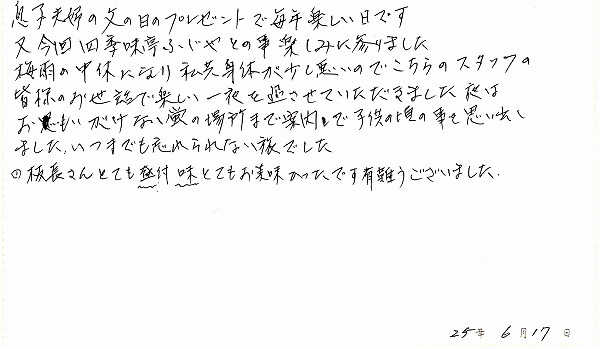 息子夫婦の父の日のプレゼントで毎年楽しい日です
又今回四季味亭ふじやとの事楽しみに参りました
梅雨の中休になり私共身体が少し悪いのでこちらのスタッフの
皆様のお世話で楽しい一夜を過させていただきました夜は
お思いがけない蛍の場所まで案内して子供の頃の事を思い出し
ました,いつまでも忘れられない旅でした
板長さんとても盛付 味とてもお美味かったです有難うございました.
25年 6月17日